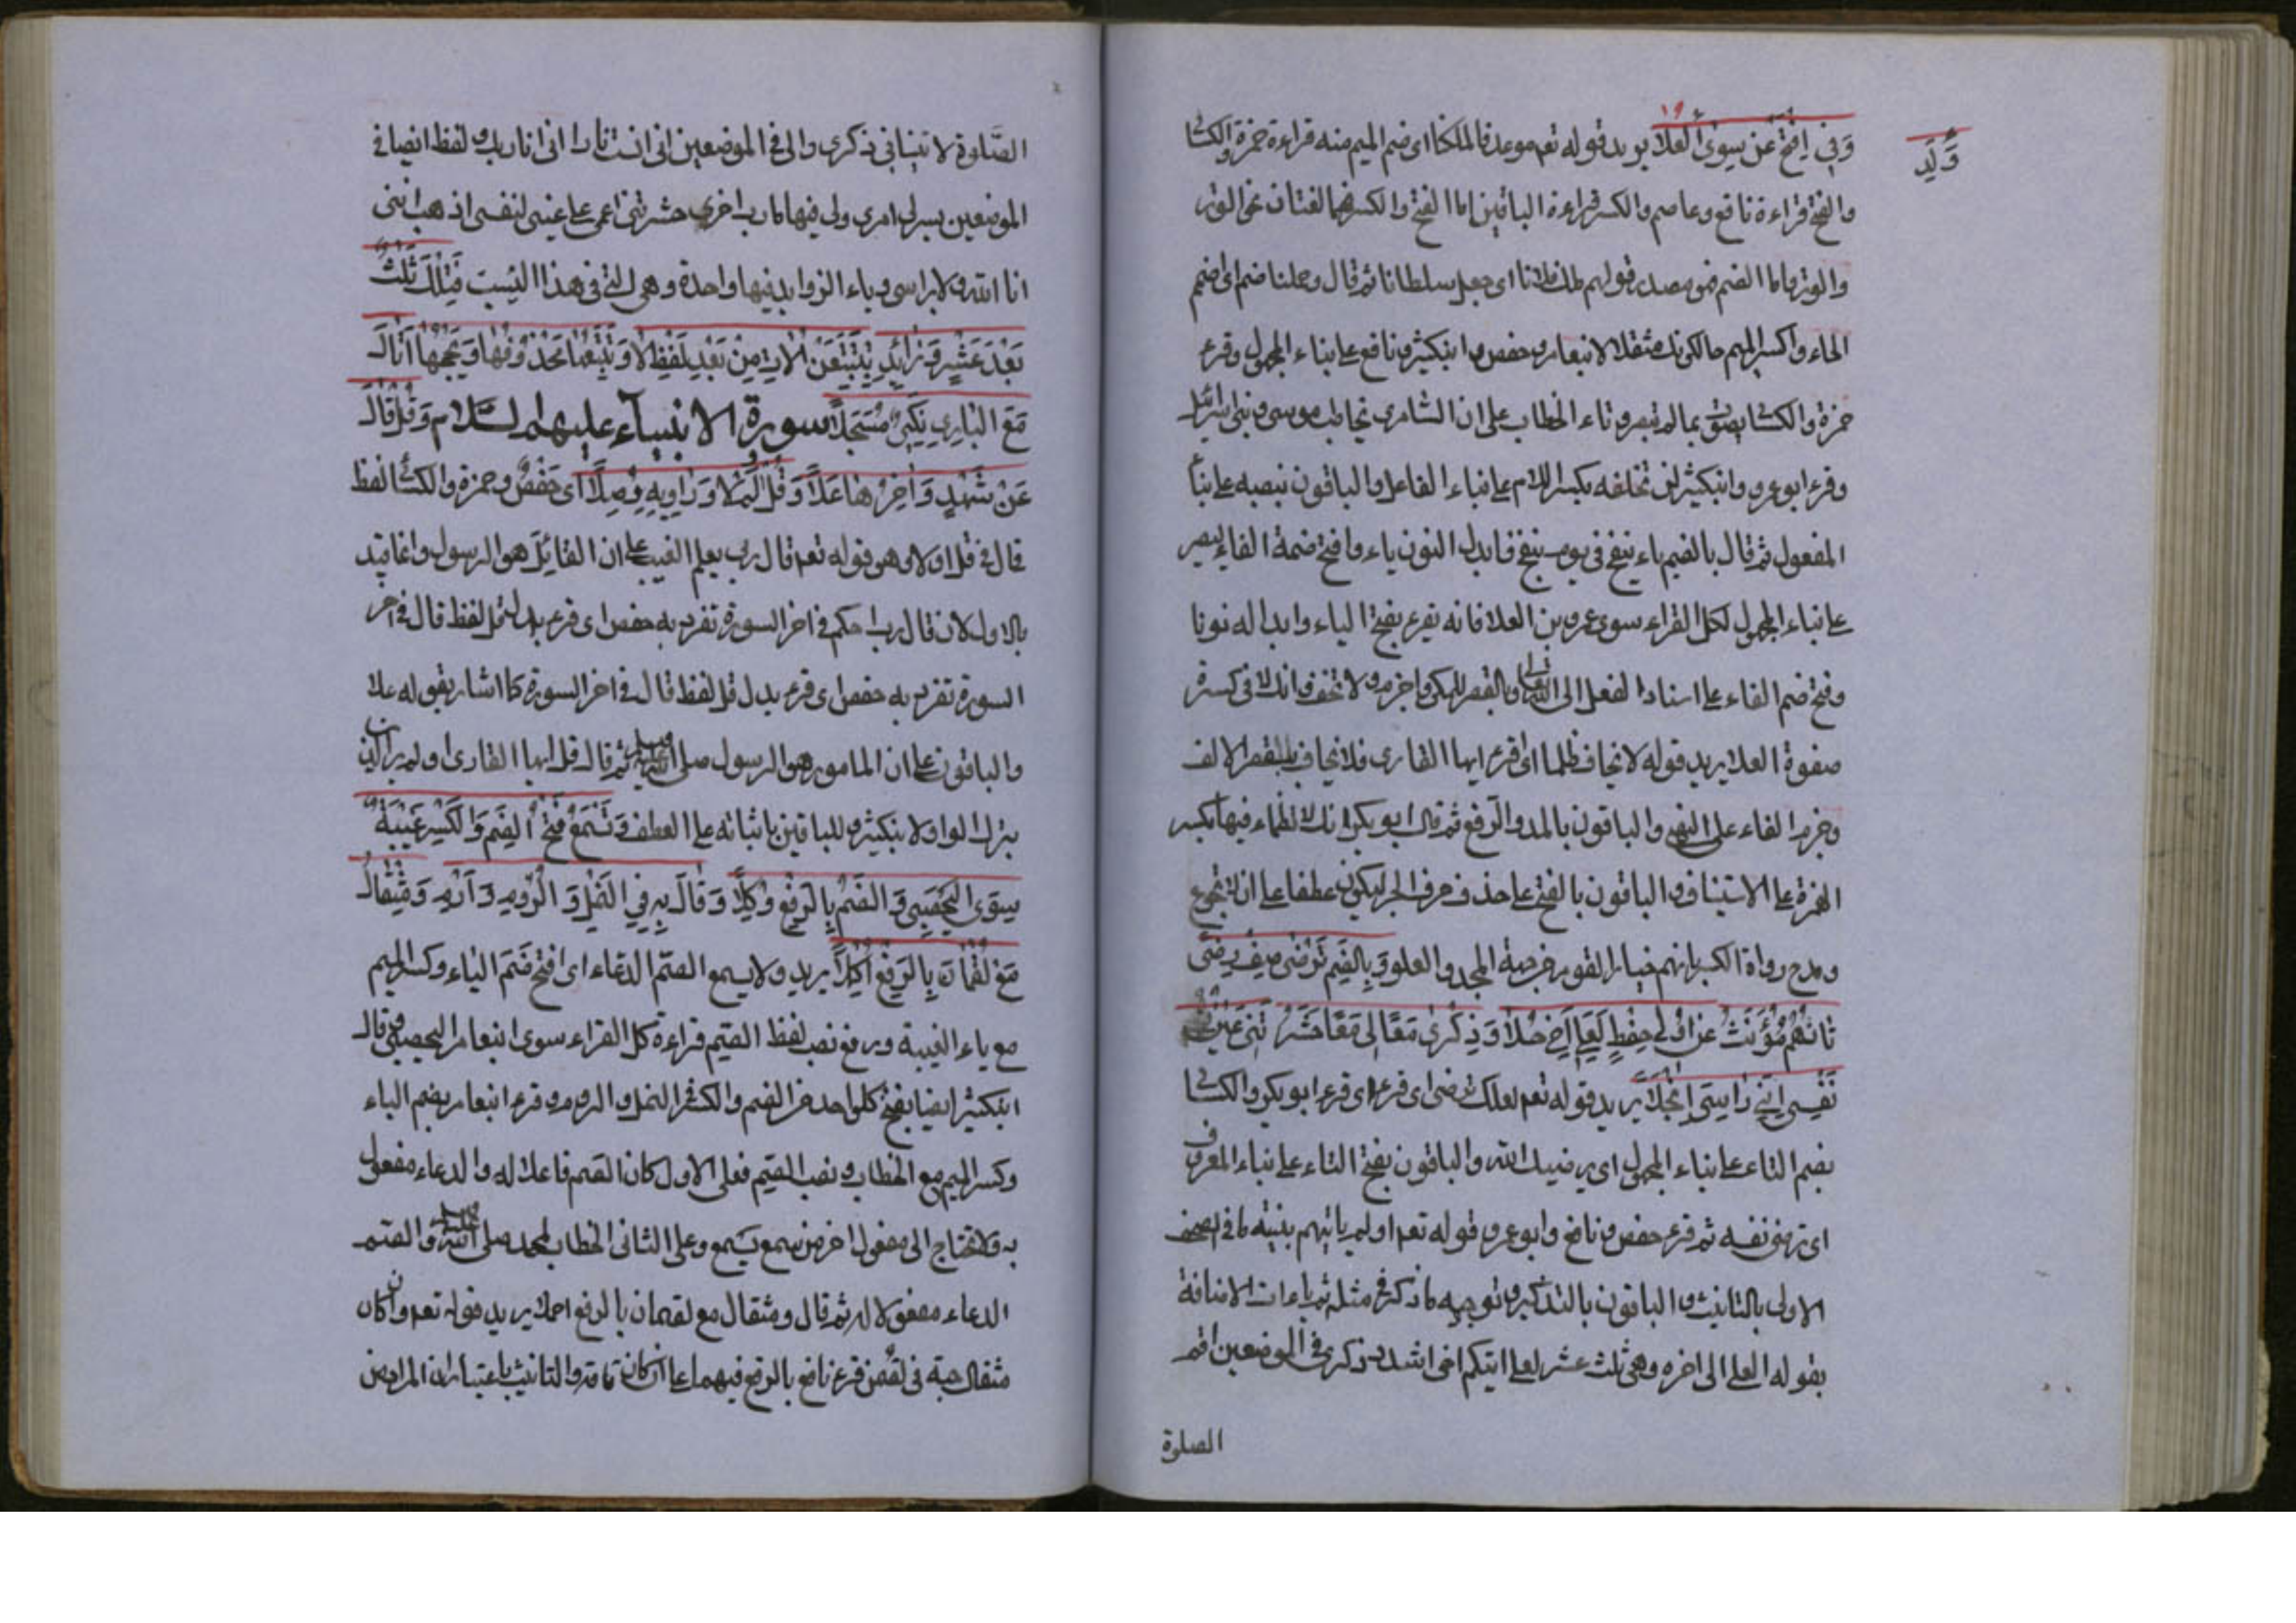 وَفِي افْتَحْ عَنْ سِوَى الْعَلَا يريد قوله تعم موعدك بملكنا اى ضم الميم منه قراءة حمزة والكسا
والفتح قراءة نافع وعاصم والكسر قراءة الباقين اما الفتح والكسر فهما لغتان نحو الوتر
والوتر واما الضم فهو مصدر قولهم ملك فلانا اى جعله سلطانا ثم قال وحملنا ضم اى اضم
الحاء واكسر الميم حالكونك مثقلا لابنعامر وحفص وابنكثير ونافع على بناء المجهول وقرء
حمزة والكسا بصرت بما لم تبصروا بتاء الخطاب على ان السامرى يخاطب موسى وبنى اسرائيل
وقرء ابوعمرو وابنكثير لن تخلفه بكسر اللام على بناء الفاعل والباقون بنصبه على بنا
المفعول ثم قال بالضم ياء ينفخ فى يوم ينفخ فابدل النون ياء وافتح ضمة الفاء ليصير
على بناء المجهول لكل القراء سوى عمرو بن العلا فانه يقرء بفتح الياء وابداله نونا
وفتح ضم الفاء على اسناد الفعل الى الله تعالى وبالقصر للمكى واجزم ولا تخف وانك لا فى كسرة
صفوة العلا يريد قوله لا يخاف ظلما اى اقرء ايها القارى فلا يخاف بالقصر الالف
وجزم الفاء على النهى والباقون بالمد والرفع ثم قال ابوبكر انك لا تظماء فيها بكسر
الهمزة على الاستيناف والباقون بالفتح على حذف حرف الجر ليكون عطفا على ان لا تجوع
ومدح رواة الكسر بانهم خيار القوم من جهة المجد والعلو وَبِالضَّمِّ تُرْضَى صِفْ رِضَى
تَأْتِهِمْ مُؤَنَّثٌ عَنْ أُولِي حِفْظٍ لَعَلِّي أَخِي حُلَا وَذِكْرِي مَعًا إِنِّي مَعًا لِي مَعًا حَشَرْتَنِي عَيْنِ
نَفْسِي إِنَّنِي رَأْسِيَ انْجَلَا يريد قوله تعم لعلك ترضى اى قرء ابوبكر والكسا
بضم التاء على بناء المجهول اى يرضيك الله والباقون بفتح التاء على بناء المعروف
اى ترضى نفسه ثم قرء حفص ونافع وابوعمرو قوله تعم اولم ياتهم بينة ما فى الصحف
الاولى بالتانيث والباقون بالتذكير وتوجيه ما ذكر فى مثله ثم ياءات الاضافة
بقوله لعلى الى اخره وهى ثلث عشر لعلى اتيكم اخى اشدد ذكرى فى الموضعين اقم
الصلوة
الصَّلوة لا تنيا فى ذكرى والى فى الموضعين انى انست نارا انى انا ربك ولفظ ايضا فى
الموضعين يسر لى امرى ولى فيها مارب اخرى حشرتنى اعمى على عينى لنفسى اذهب اننى
انا الله ولا براسى وياء الزوايد فيها واحدة وهى التى فى هذا البيت فَتِلْكَ ثَلَثٌ
بَعْدَ عَشْرٍ وَزَائِدٌ بِتَتَّبِعَنْ الآتِ مِنْ بَعْدِ لَفْظِ لا
مَعَ الْبَارِى سورة الانبياء عليهم السلام وَقُلْ قَالَ
عَنْ شَهْدٍ وَآخِرُهَا عَلَا وَقُلْ أَوَلَمْ لا وَاوَ دَارِيهِ وَصَّلَا اى حفص وحمزة والكسا لفظ
قال فى قل اولا وهو قوله تعم قال ربى يعلم الغيب على ان القائل هو الرسول وانما قيد
بالاول لان قال رب احكم فى اخر السورة تفرد به حفص اى قرء بدل قل لفظ قال فى اخر
السورة تفرد به حفص اى قرء بدل قل لفظ قال فى اخر السورة كما اشار بقوله علا
والباقون على ان المامور هو الرسول صلى الله عليه وسلم ثم قال قل ايها القارى اولم ير الذين
بترك الواو لابنكثير وللباقين باثباته على العطف وَتُسْمِعُ فَتْحُ الضَّمِّ وَالْكَسْرِ غَيْبَةً
سِوَى الْيَحْصُبِي وَالصُّمُّ بِالرَّفْعِ وُكِّلَا وَقَالَ بِهِ فِي النَّمْلِ وَالرُّومِ دَارِمٌ وَمِثْقَالُ
مَعْ لُقْمَانَ بِالرَّفْعِ أُكْمِلَا يريد ولا يسمع الصم الدعاء اى افتح ضم الياء وكسر الميم
مع ياء الغيبة ورفع نصب لفظ الصم قراءة كل القراء سوى ابنعامر اليحصبى وقال
ابنكثير ايضا بفتح كل واحد من الضم والكسر فى النمل والروم وقرء ابنعامر بضم الياء
وكسر الميم مع الخطاب ونصب الصم فعلى الاول كان الصم فاعلا له والدعاء مفعول
به فلا يحتاج الى مفعول اخر من سمع يسمع وعلى الثانى الخطاب لمحمد صلى الله عليه وسلم والصم
الدعاء مفعولا له ثم قال ومثقال مع لقمان بالرفع اكملا يريد قوله تعم وان كان
مثقال حبة فى لقمن قرء نافع بالرفع فيهما على ان كان تامة والتانيث باعتبار ان المراد من